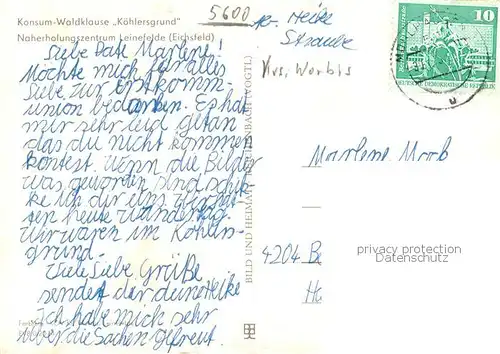 Konsum-Waldklause „Köhlersgrund"
Naherholungszentrum Leinefelde (Eichsfeld)
Liebe Date Marlene!
Möchte mich für alles
Liebe zur Erstkomm-
union bedanken. Es hat
mir sehr leid getan
das du nicht kommen
kontest. Wenn die Bilder
was geworden sind schik-
ke ich dir eins. Wir
heute Wandertag.
Wir waren im Köhlers-
grund.
Viele Liebe Grüße
sendet dir deine Heike
Ich habe mich sehr
über die Sachen gefreut.
BILD UND HEIMAT REICHENBACH (VOGTL)
5600
Heike
Straube
Krs. Worbis
10
DEUTSCHE DEMOKRATISCHE REPUBLIK
Marlene Moob
4204 B
privacy protection
Datenschutz